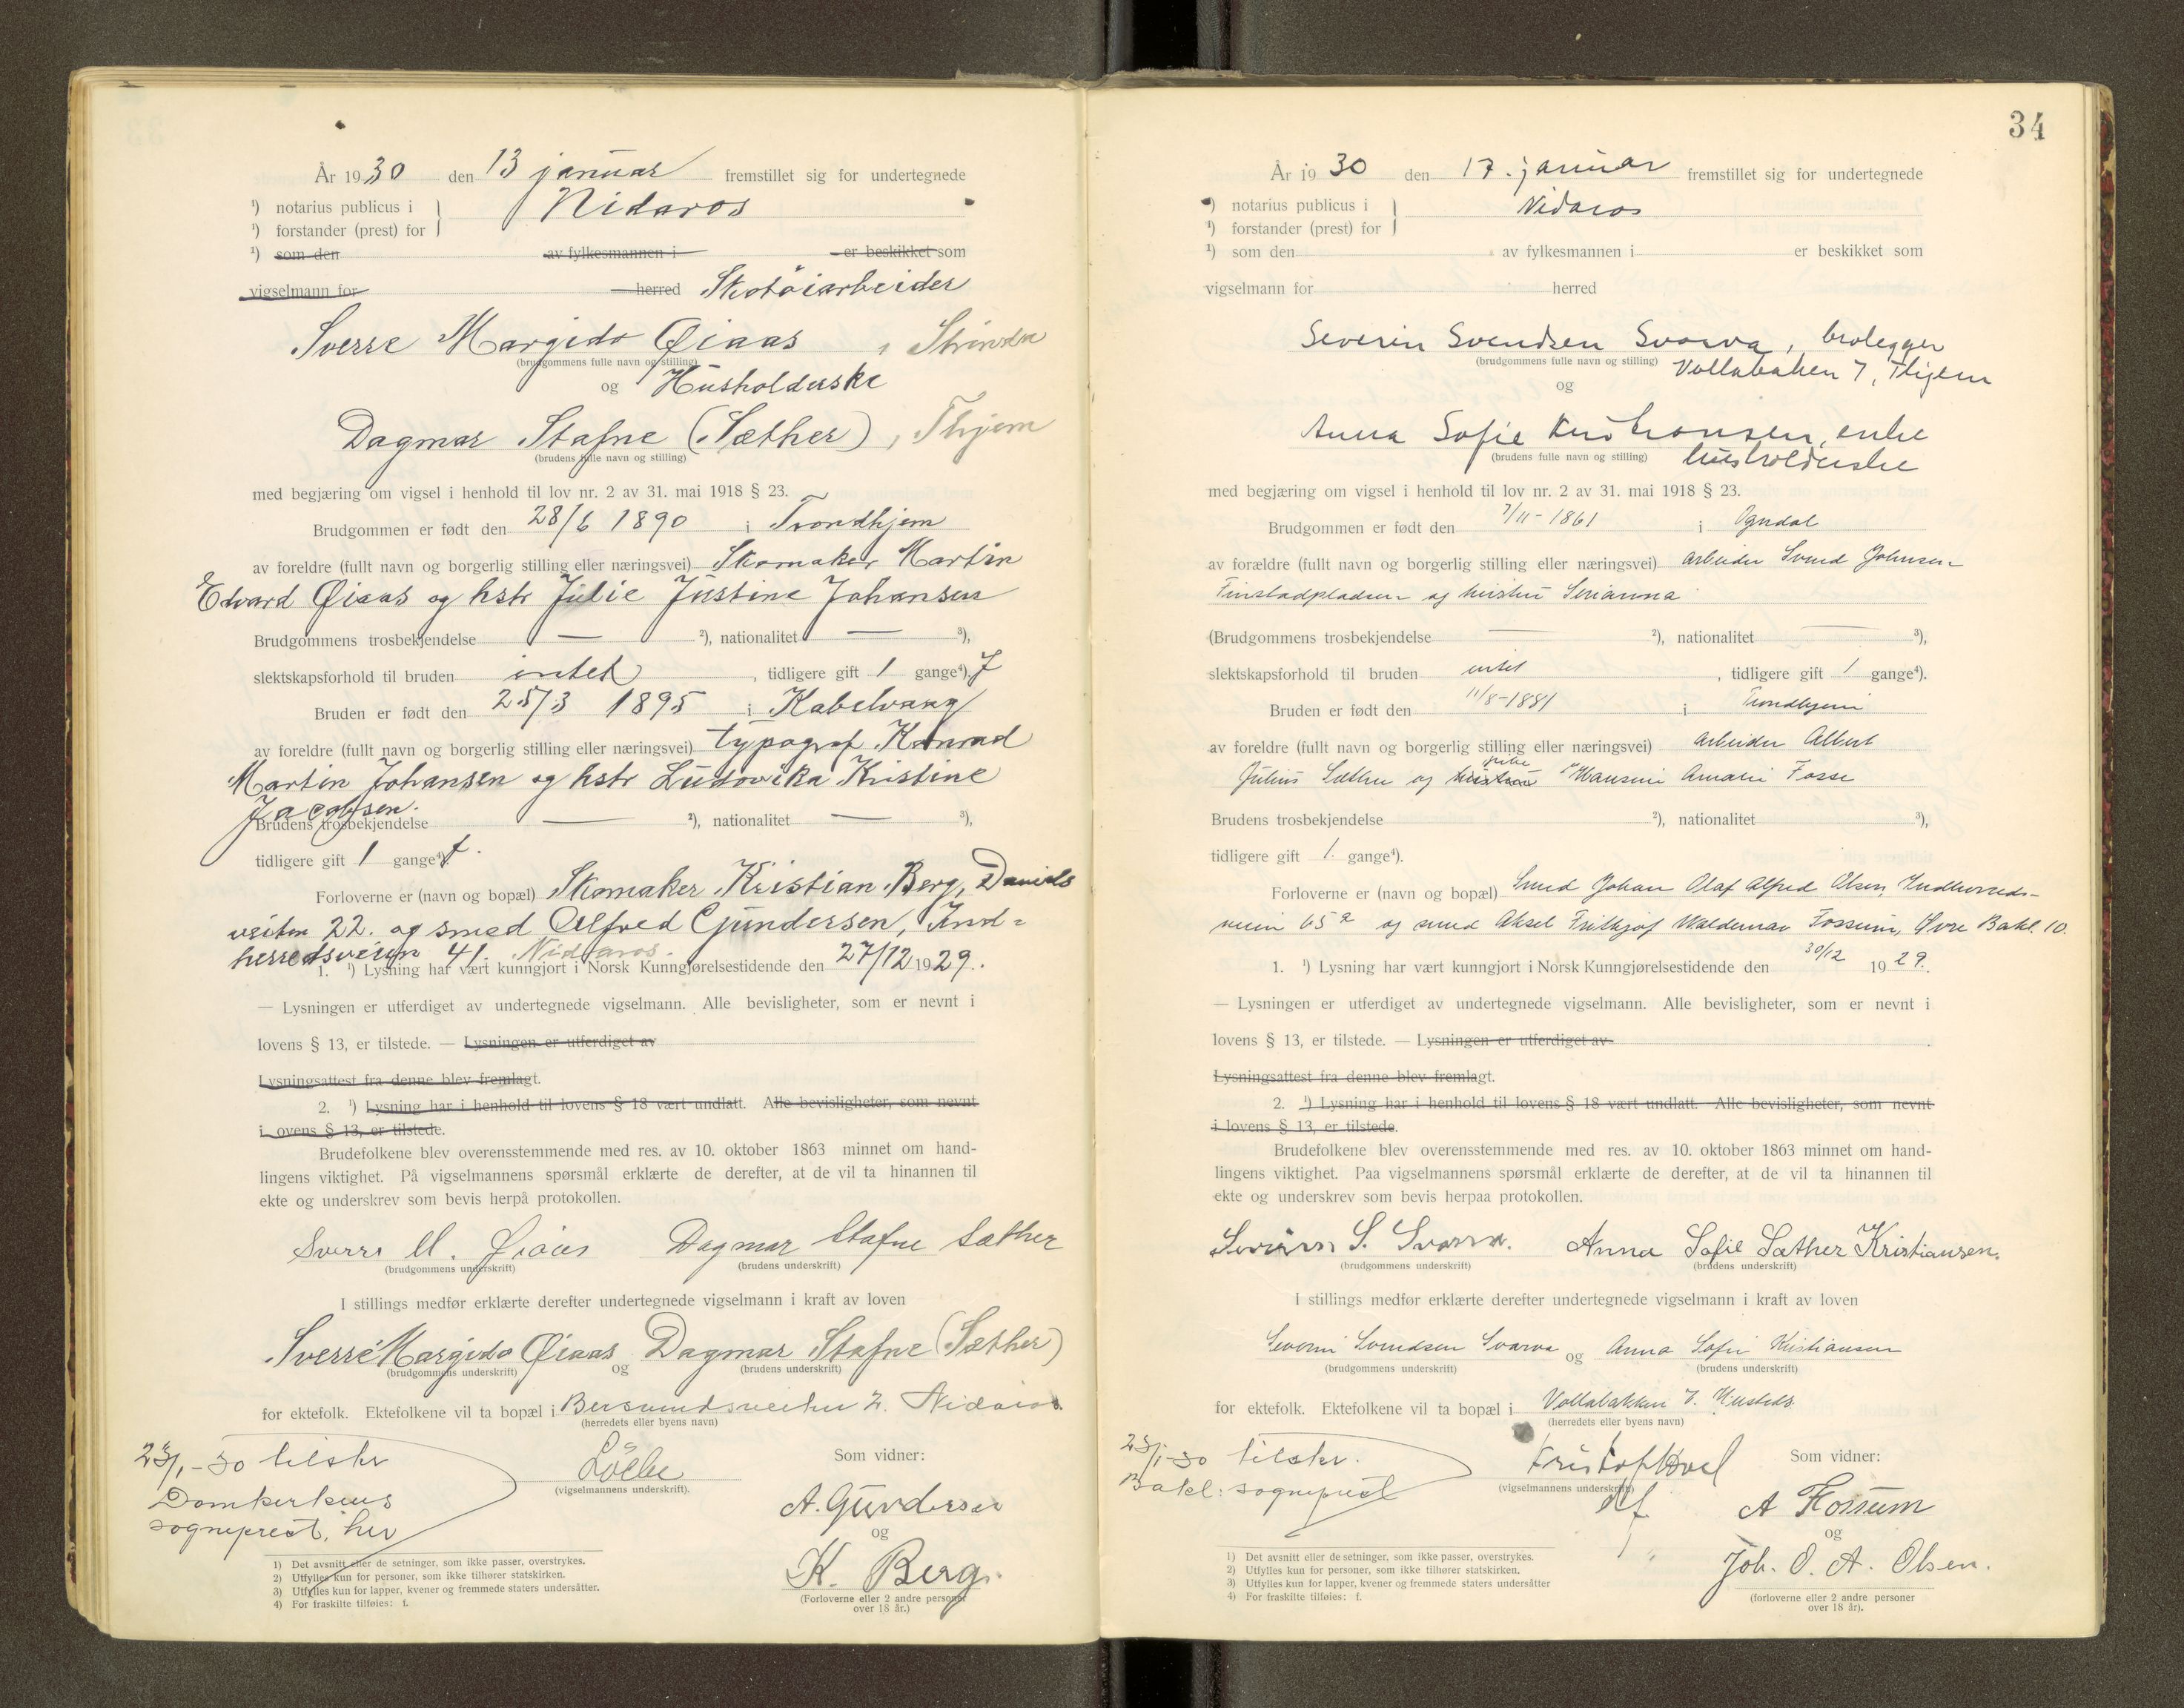 År 1930 den 13 januar fremstillet sig for undertegnede
¹) notarius publicus i
¹) forstander (prest) for
Nidaros
¹) som den av fylkesmannen i er beskikket som
vigselmann for herred Skotöiarbeider
Sverre Margido Øiaas, Strinda
(brudgommens fulle navn og stilling)
og Husholderske
Dagmar Stafne (Sæther), Thjem
(brudens fulle navn og stilling)
med begjæring om vigsel i henhold til lov nr. 2 av 31. mai 1918 § 23.
Brudgommen er født den 28/6 1890 i Trondhjem
av foreldre (fullt navn og borgerlig stilling eller næringsvei) Skomaker Martin
Edvard Øiaas og hstr Julie Justine Johansen
Brudgommens trosbekjendelse — ²), nationalitet — ³),
slektskapsforhold til bruden intet, tidligere gift 1 gange⁴). f
Bruden er født den 25/3 1895 i Kabelvaag
av foreldre (fullt navn og borgerlig stilling eller næringsvei) typograf Konrad
Martin Johansen og hstr Ludovika Kristine
Jacobsen.
Brudens trosbekjendelse — ²), nationalitet — ³),
tidligere gift 1 gange⁴). f.
Forloverne er (navn og bopæl) Skomaker Kristian Berg, Daniels
veiten 22. og smed Alfred Gundersen, Ind=
herredsveien 41. Nidaros.
1. ¹) Lysning har vært kunngjort i Norsk Kunngjørelsestidende den 27/12 1929.
— Lysningen er utferdiget av undertegnede vigselmann. Alle bevisligheter, som er nevnt i
lovens § 13, er tilstede. — Lysningen er utferdiget av
Lysningsattest fra denne blev fremlagt.
2. ¹) Lysning har i henhold til lovens § 18 vært undlatt. Alle bevisligheter, som nevnt
i ovens § 13, er tilstede.
Brudefolkene blev overensstemmende med res. av 10. oktober 1863 minnet om hand-
lingens viktighet. På vigselmannens spørsmål erklærte de derefter, at de vil ta hinannen til
ekte og underskrev som bevis herpå protokollen.
Sverre M. Øiaas Dagmar Stafne Sæther
(brudgommens underskrift) (brudens underskrift)
I stillings medfør erklærte derefter undertegnede vigselmann i kraft av loven
Sverre Margido Øiaas og Dagmar Stafne (Sæther)
(brudgommens underskrift) (brudens underskrift)
for ektefolk. Ektefolkene vil ta bopæl i Bersvendsveiten 2. Nidaros.
(herredets eller byens navn)
23/1-30 tilskr
Domkirkens
sogneprest, her
(vigselmannens underskrift).
Som vidner:
A. Gundersen
og
K. Berg.
(Forloverne eller 2 andre personer
over 18 år.)
1) Det avsnitt eller de setninger, som ikke passer, overstrykes.
2) Utfylles kun for personer, som ikke tilhører statskirken.
3) Utfylles kun for lapper, kvener og fremmede staters undersåtter.
4) For fraskilte tilføies: f.
34
År 1930 den 17. januar fremstillet sig for undertegnede
¹) notarius publicus i
¹) forstander (prest) for
Nidaros
¹) som den av fylkesmannen i er beskikket som
vigselmann for herred
Severin Svendsen Svarva, brolegger
(brudgommens fulle navn og stilling) Vollabakken 7, Thjem
og
Anna Sofie Kristiansen, enke
(brudens fulle navn og stilling) husholderske
med begjæring om vigsel i henhold til lov nr. 2 av 31. mai 1918 § 23.
Brudgommen er født den 7/11-1861 i Ogndal
av forældre (fullt navn og borgerlig stilling eller næringsvei) arbeider Svend Johnsen
Tinstadpladsen og hustru Serianna
(Brudgommens trosbekjendelse — ²), nationalitet — ³),
slektskapsforhold til bruden intet, tidligere gift 1 gange⁴).
Bruden er født den 11/8-1881 i Trondhjem
av foreldre (fullt navn og borgerlig stilling eller næringsvei) Arbeider Albert
Julius Sæther og hustru pike Hansine Amalie Fosse
Brudens trosbekjendelse ²), nationalitet ³),
tidligere gift 1. gange⁴).
Forloverne er (navn og bopæl) Smed Johan Olaf Alfred Olsen, Indherreds-
veien 65ª og smed Aksel Frithjof Waldemar Fossum, Øvre Bakl. 10.
1. ¹) Lysning har vært kunngjort i Norsk Kunngjørelsestidende den 30/12 1929.
— Lysningen er utferdiget av undertegnede vigselmann. Alle bevisligheter, som er nevnt i
lovens § 13, er tilstede. — Lysningen er utferdiget av
Lysningsattest fra denne blev fremlagt.
2. ¹) Lysning har i henhold til lovens § 18 vært undlatt. Alle bevisligheter, som nevnt
i lovens § 13, er tilstede.
Brudefolkene blev overensstemmende med res. av 10. oktober 1863 minnet om hand-
lingens viktighet. Paa vigselmannens spørsmål erklærte de derefter, at de vil ta hinannen til
ekte og underskrev som bevis herpaa protokollen.
Severin S. Svarva. Anna Sofie Sæther Kristiansen.
(brudgommens underskrift) (brudens underskrift)
I stillings medfør erklærte derefter undertegnede vigselmann i kraft av loven
Severin Svendsen Svarva og Anna Sofie Kristiansen
(brudgommens underskrift) (brudens underskrift)
for ektefolk. Ektefolkene vil ta bopæl i Vollabakken 7.
(herredets eller byens navn)
23/1-30 tilskr.
Bakl: sogneprest
(vigselmannens underskrift)
Som vidner:
A Fossum
og
Joh. O. A. Olsen.
(forloverne eller 2 andre personer
over 18 år).
1) Det avsnitt eller de setninger, som ikke passer, overstrykes.
2) Utfylles kun for personer, som ikke tilhører statskirken.
3) Utfylles kun for lapper, kvener og fremmede staters undersåtter
4) For fraskilte tilføies: f.